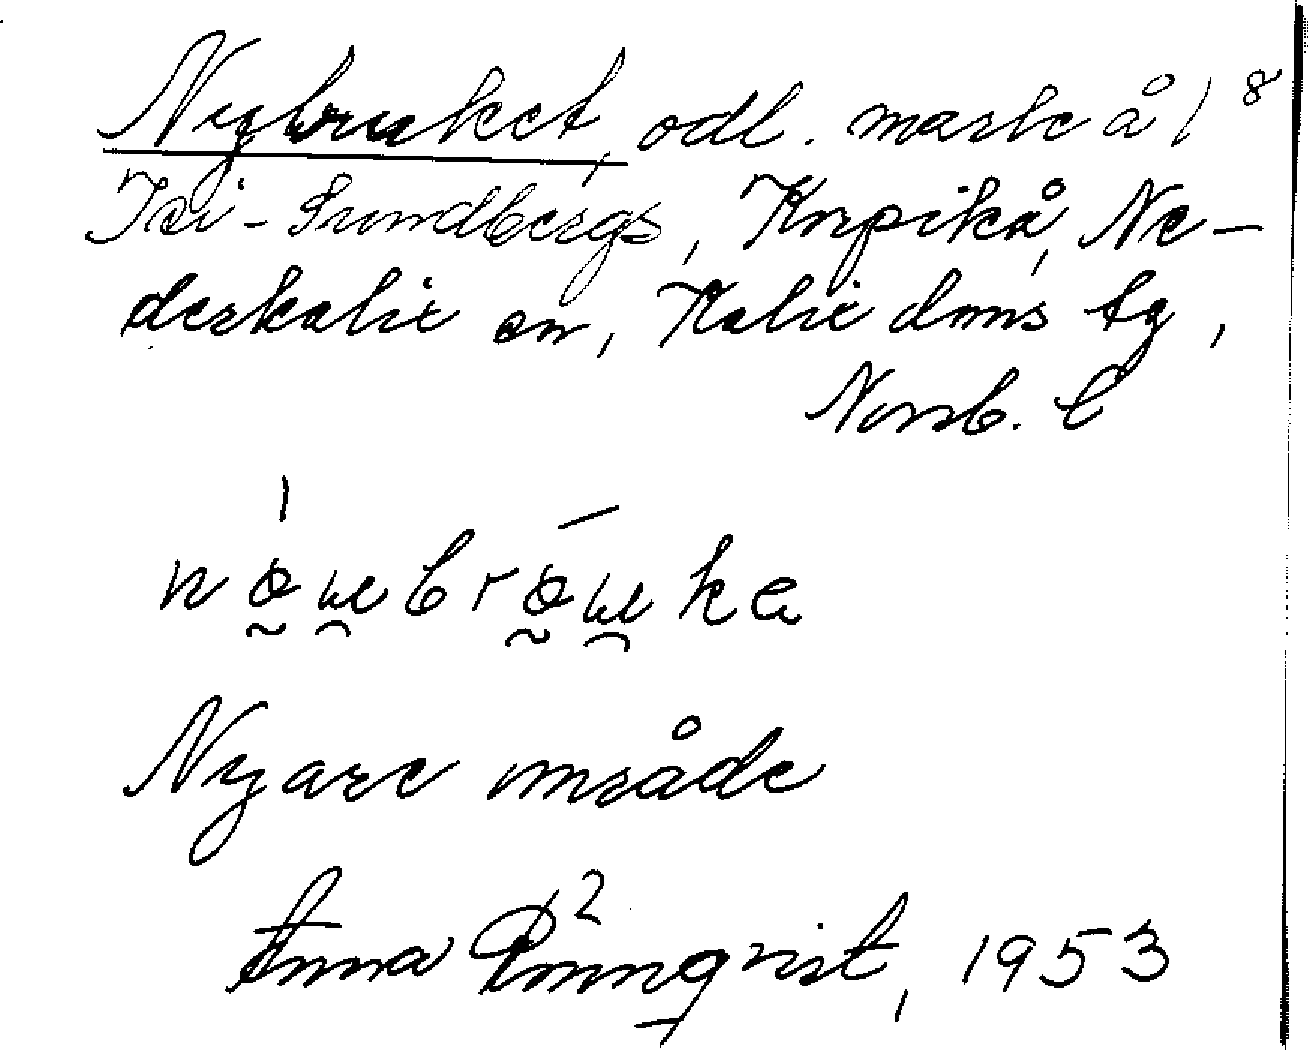 Nybruket, odl. mark å 1⁸
Isi-Sundbergs, Korpikå, Ne-
derkalix sn, Kalix doms tg,
Norrb. l
Nyare område
Anna Rönnqvist, 1953